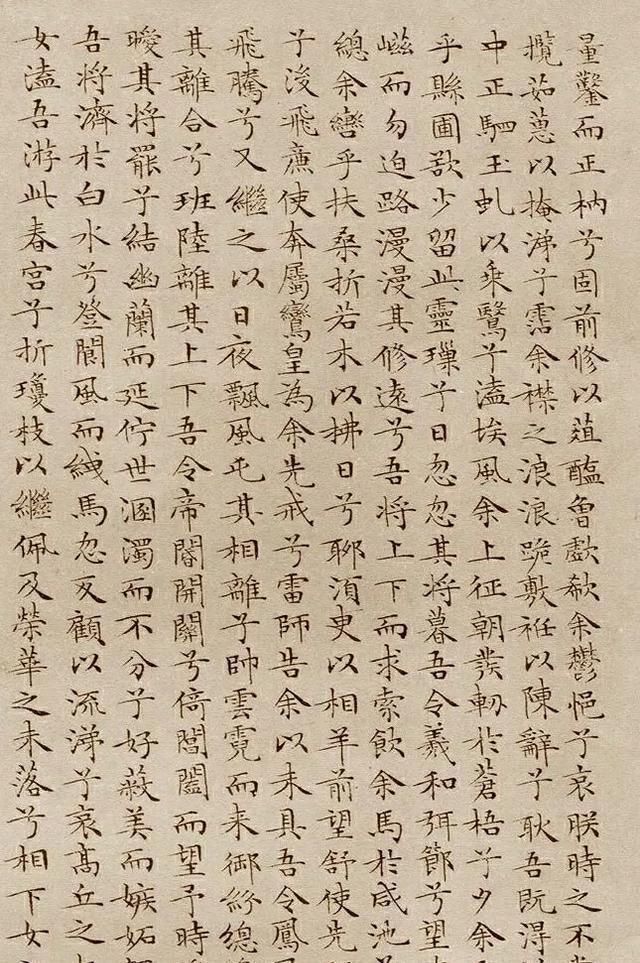 量鑿而正枘兮固前修以菹醢曾歔欷余鬱悒兮哀朕時之不
攬茹蕙以掩涕兮霑余襟之浪浪跪敷衽以陳辭兮耿吾既得
中正駟玉虬以乘鷖兮溘埃風余上征朝發軔於蒼梧兮夕余
乎縣圃欲少留此靈璅兮日忽忽其將暮吾令羲和弭節兮望
嵫而勿迫路漫漫其修遠兮吾將上下而求索飲余馬於咸池
總余轡乎扶桑折若木以拂日兮聊須臾以相羊前望舒使先
兮後飛廉使奔屬鸞皇為余先戒兮雷師告余以未具吾令鳳
飛騰兮又繼之以日夜飄風屯其相離兮帥雲霓而来御紛總
其離合兮班陸離其上下吾令帝閽開關兮倚閶闔而望予時
曖其將罷兮結幽蘭而延佇世溷濁而不分兮好蔽美而嫉妬
吾將濟於白水兮登閬風而緤馬忽反顧以流涕兮哀高丘之
女溘吾游此春宮兮折瓊枝以繼佩及榮華之未落兮相下女